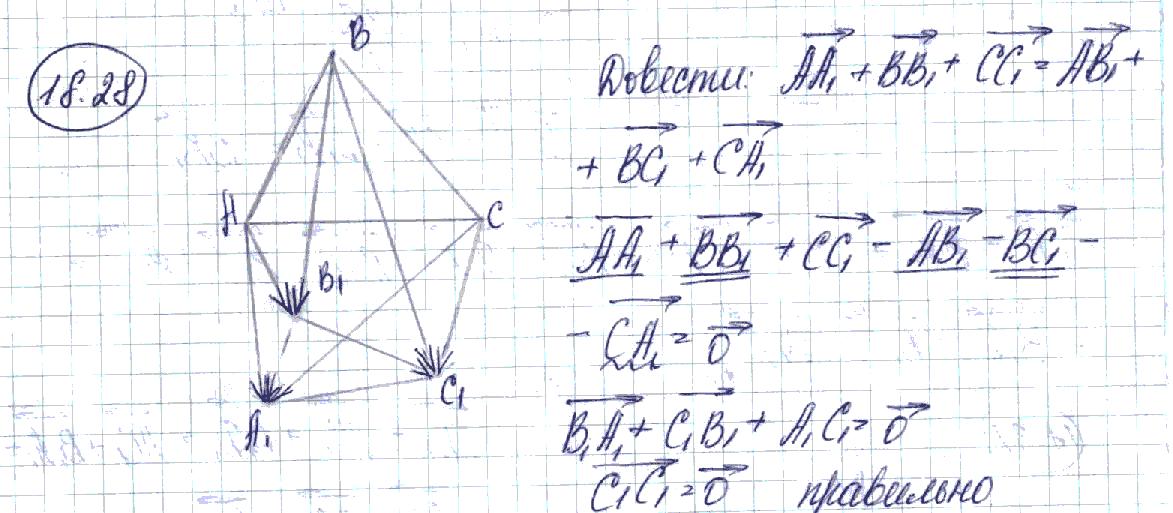 18.28
B
A
C
B₁
A₁
C₁
Довести: AA₁ + BB₁ + CC₁ = AB₁ +
+ BC₁ + CA₁
AA₁ + BB₁ + CC₁ - AB₁ - BC₁ -
- CA₁ = 0
B₁A₁ + C₁B₁ + A₁C₁ = 0
C₁C₁ = 0 правильно